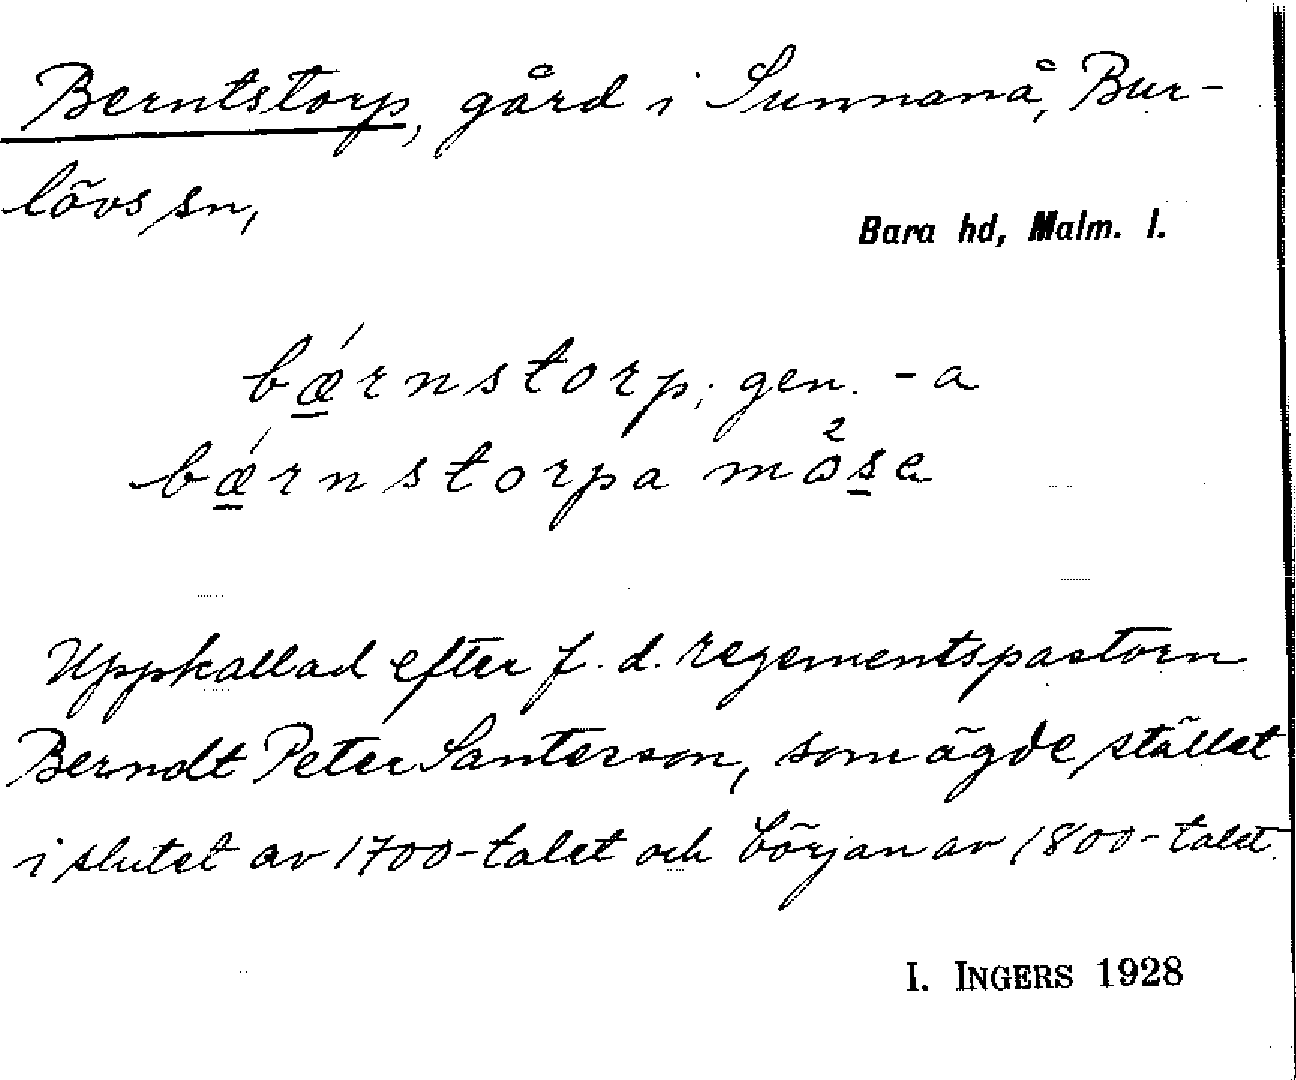 Berntstorp, gård i Sunnanå, Bur-
lövs sn,
Bara hd, Malm. l.
bǽ̠rnstorp; gen. -a
bǽ̠rnstorpa må²s̠a
Uppkallad efter f. d. regementspastorn
Berndt Peter Santerson, som ägde stället
i slutet av 1700-talet och början av 1800-talet.
I. INGERS 1928